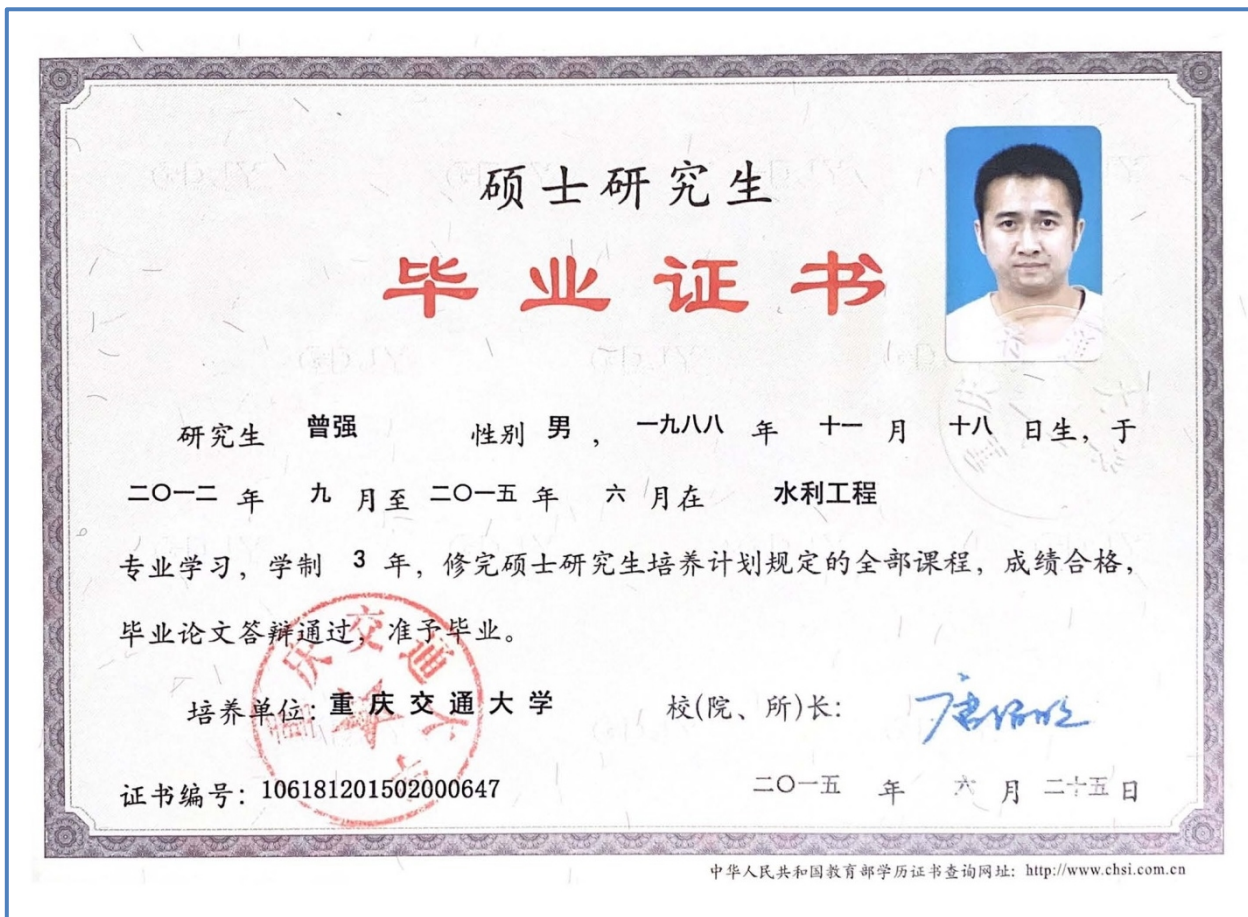 硕士研究生
毕业证书
研究生 曾强 性别 男 , 一九八八 年 十一 月 十八 日生, 于
二〇一二 年 九 月至 二〇一五 年 六 月在 水利工程
专业学习, 学制 3 年, 修完硕士研究生培养计划规定的全部课程, 成绩合格,
毕业论文答辩通过, 准予毕业。
培养单位: 重庆交通大学 校(院、所)长: 唐伯明
证书编号: 106181201502000647 二〇一五 年 六 月 二十五 日
重庆交通大学
中华人民共和国教育部学历证书查询网址: http://www.chsi.com.cn